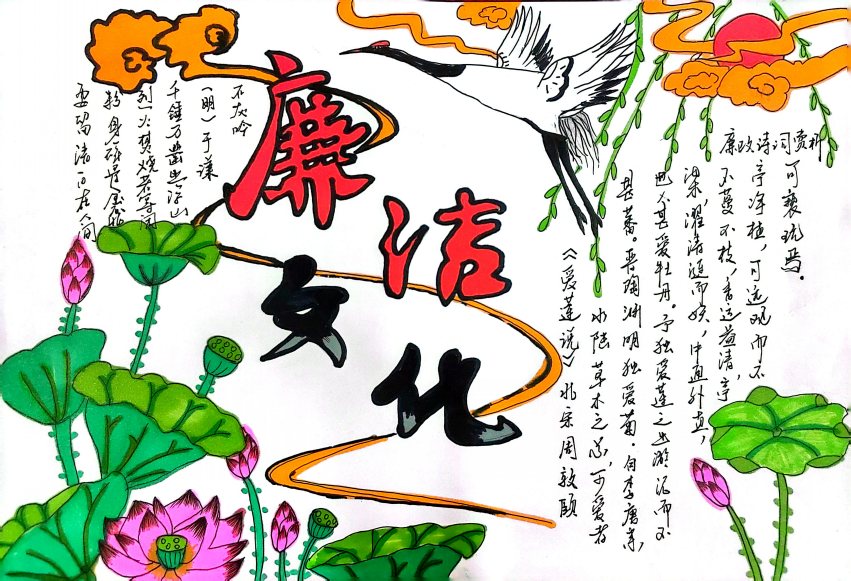 廉洁
文化
石灰吟
(明)于谦
千锤万凿出深山
烈火焚烧若等闲
粉身碎骨
要留清白在人间
廉政诗词赏析
《爱莲说》北宋周敦颐
水陆草木之花,可爱者
甚蕃。晋陶渊明独爱菊。自李唐来,
世人甚爱牡丹。予独爱莲之出淤泥而不
染,濯清涟而妖,中通外直,
不蔓不枝,香远益清,亭
亭净植,可远观而不
可亵玩焉。